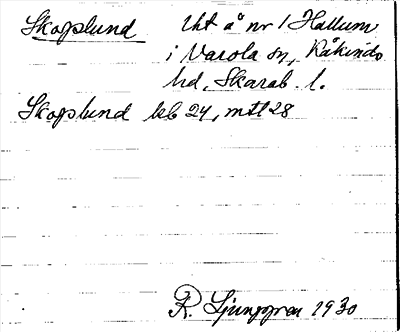 Skogslund Uht å nr 1 Hallum
i Varola sn, Kåkinds
hd, Skarab. l.
Skogslund kb 24, mtl 28
R. Ljunggren 1930